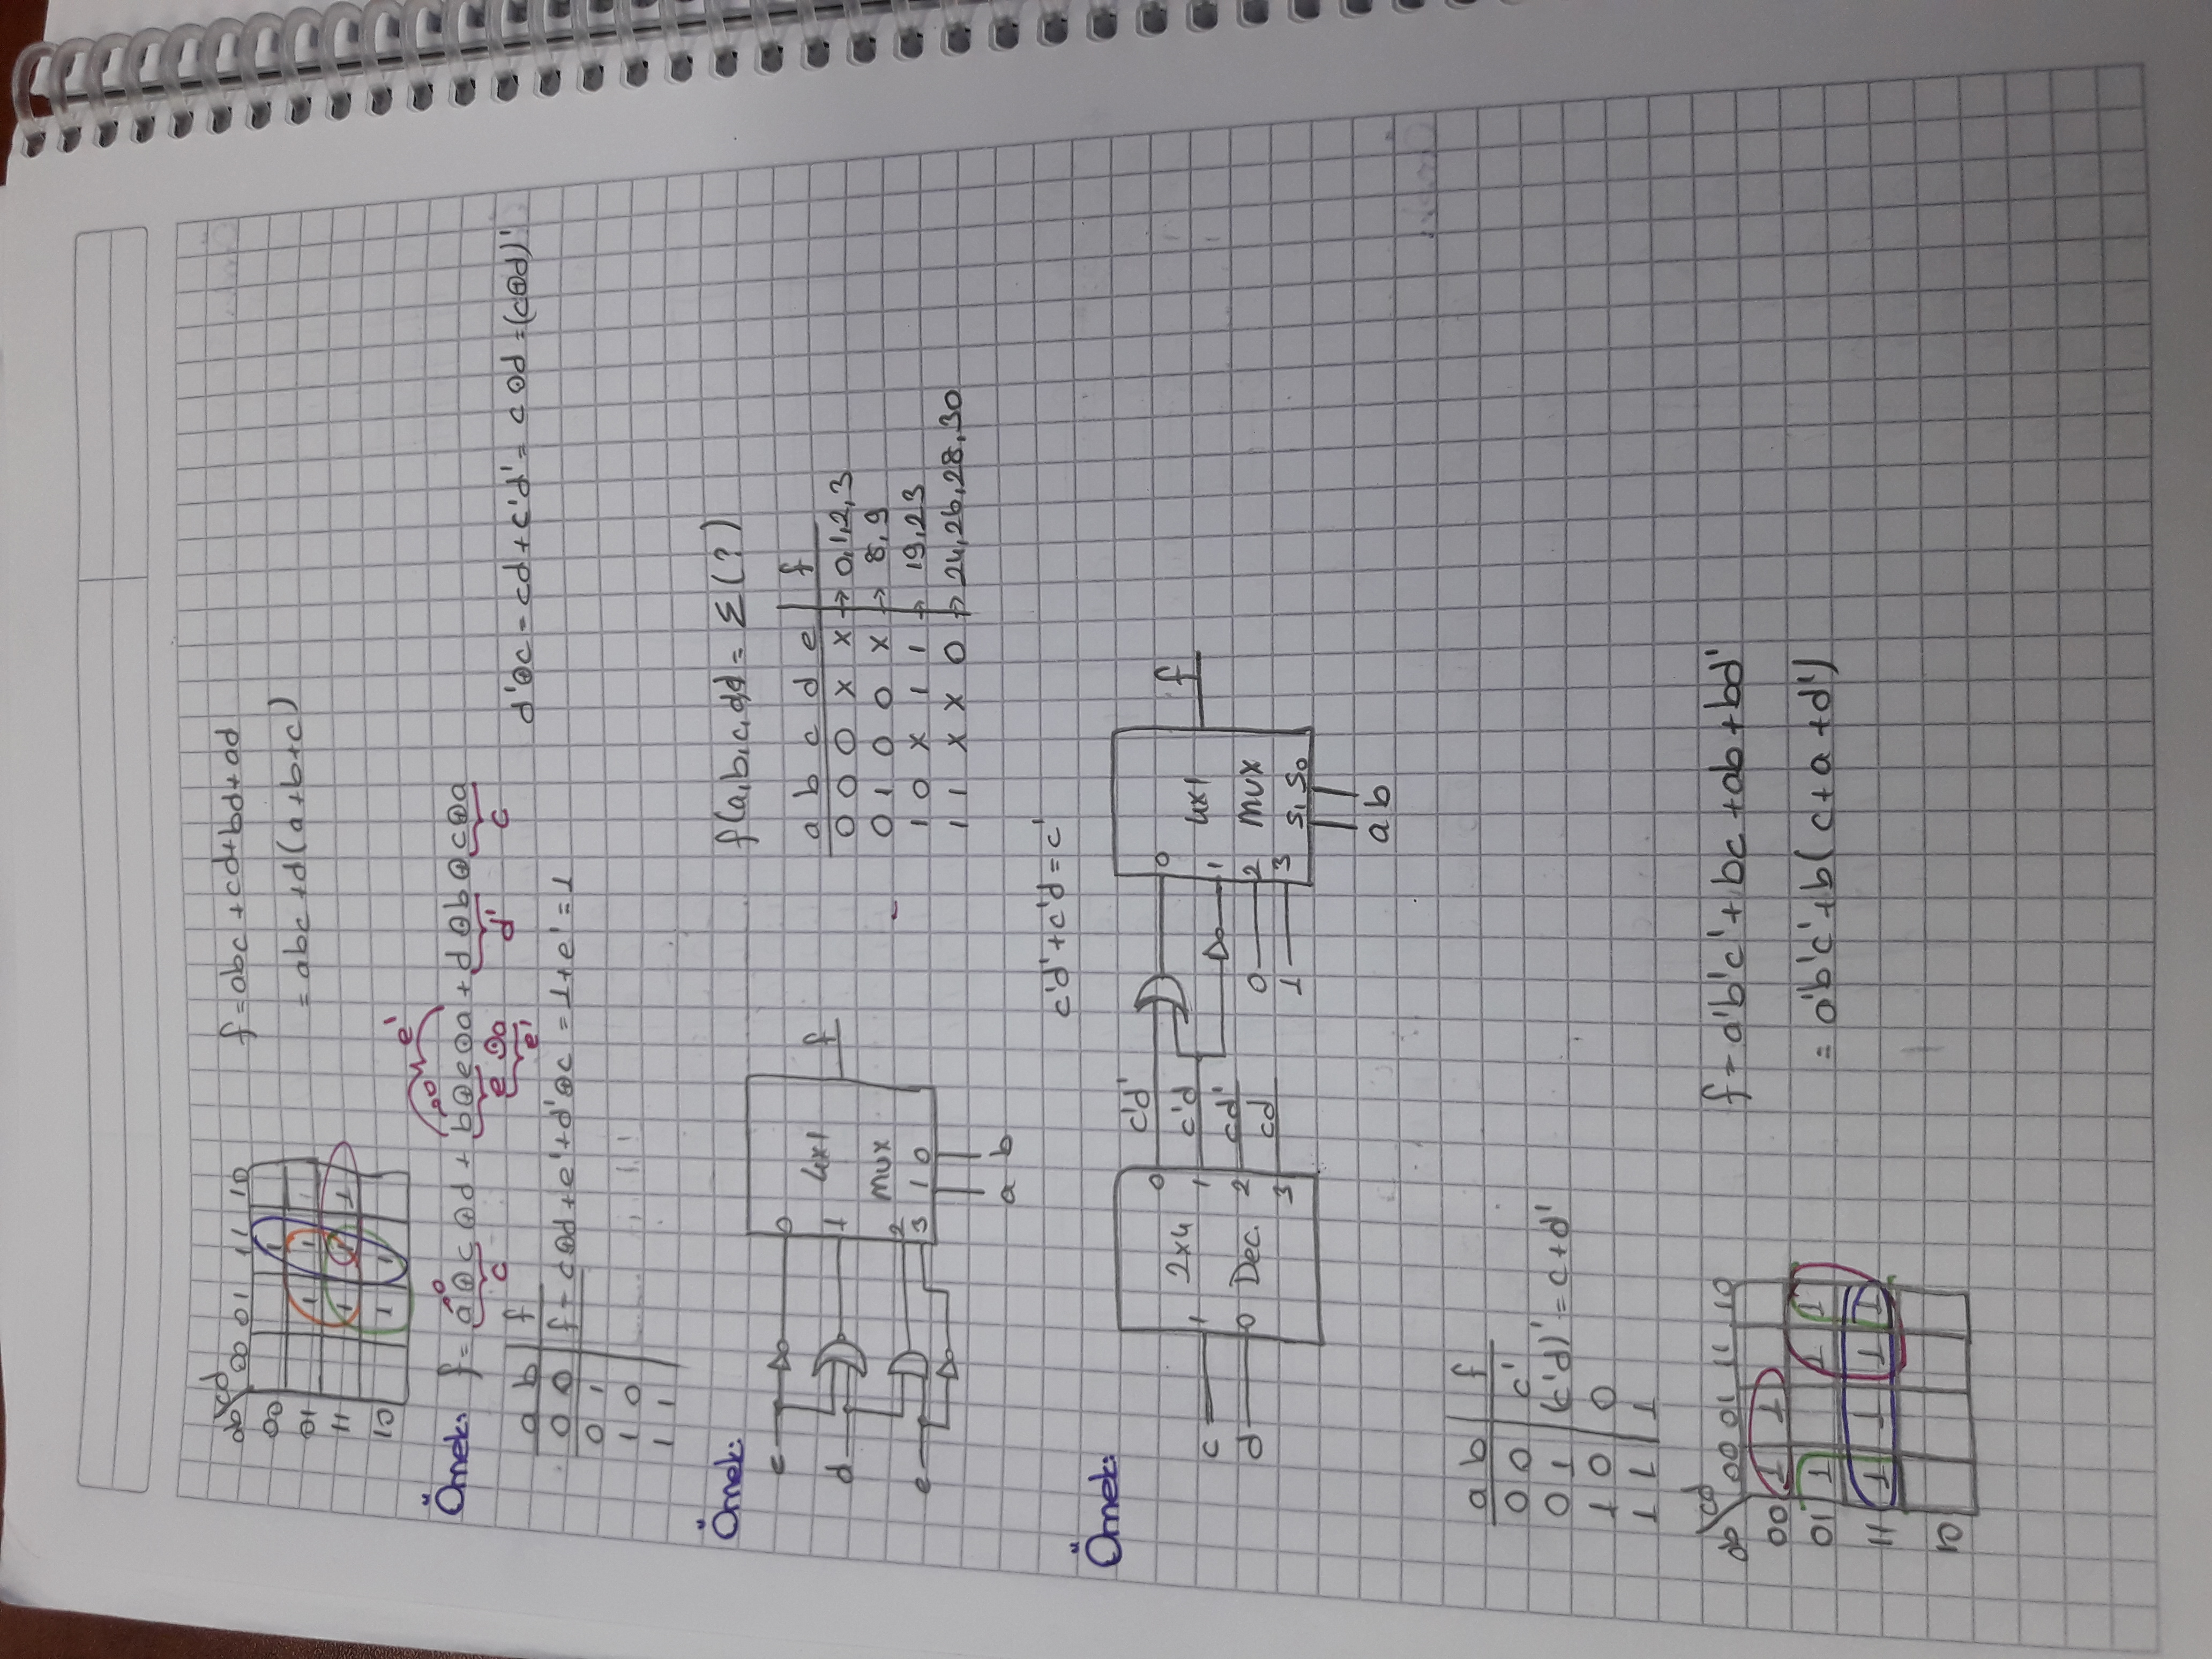 ab\cd 00 01 11 10
00 1
01 1 1
11 1 1 1
10 1 1
f = abc + cd + bd + ad
= abc + d(a+b+c)
Örnek: f = a⊕c⊕d + b⊕e⊙a + d⊙b⊕c⊕a
0 0 0 e'
c e⊙a d' c
e'
d'⊕c = cd + c'd' = c⊙d = (c⊕d)'
a b | f
0 0 | f = c⊕d + e' + d'⊕c = 1 + e' = 1
0 1
1 0
1 1
Örnek:
f(a,b,c,d,e) = Σ(?)
c
d
e
0
1
2
3 1 0
4x1
mux
f
a b
a b c d e | f
0 0 0 x x → 0,1,2,3
0 1 0 0 x → 8,9
1 0 x 1 1 → 19,23
1 1 x x 0 → 24,26,28,30
c'd' + c'd = c'
Örnek:
c 1
d 0
2x4
Dec.
0 c'd'
1 c'd
2 cd'
3 cd
0
1
0 2
1 3
4x1
mux
S1 S0
f
a b
a b | f
0 0 | c'
0 1 | (c'd)' = c+d'
1 0 | 0
1 1 | 1
ab\cd 00 01 11 10
00 1 1
01 1 1 1
11 1 1 1 1
10
f = a'b'c' + bc + ab + bd'
= a'b'c' + b(c + a + d')